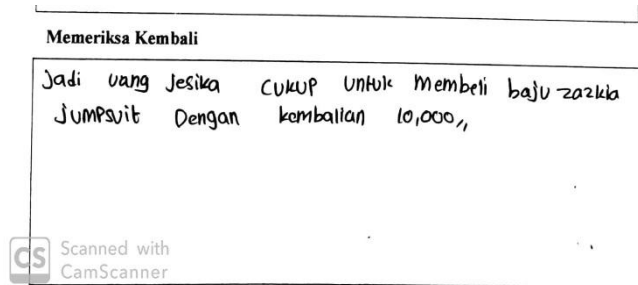 Memeriksa Kembali
Jadi uang Jesika cukup untuk membeli baju zazkia
jumpsuit Dengan kembalian 10,000,,
CS Scanned with
CamScanner